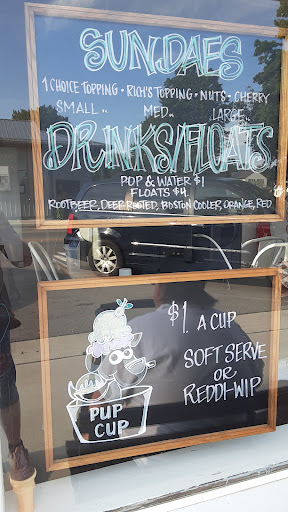 SUNDAES
1 CHOICE TOPPING • RICH'S TOPPING • NUTS • CHERRY
SMALL .. MED .. LARGE ..
DRINKS/FLOATS
POP & WATER $1
FLOATS $4
ROOTBEER, DEER-ROOTED, BOSTON COOLER, ORANGE, RED
$1 A CUP
SOFT SERVE
OR
REDDI-WIP
PUP
CUP